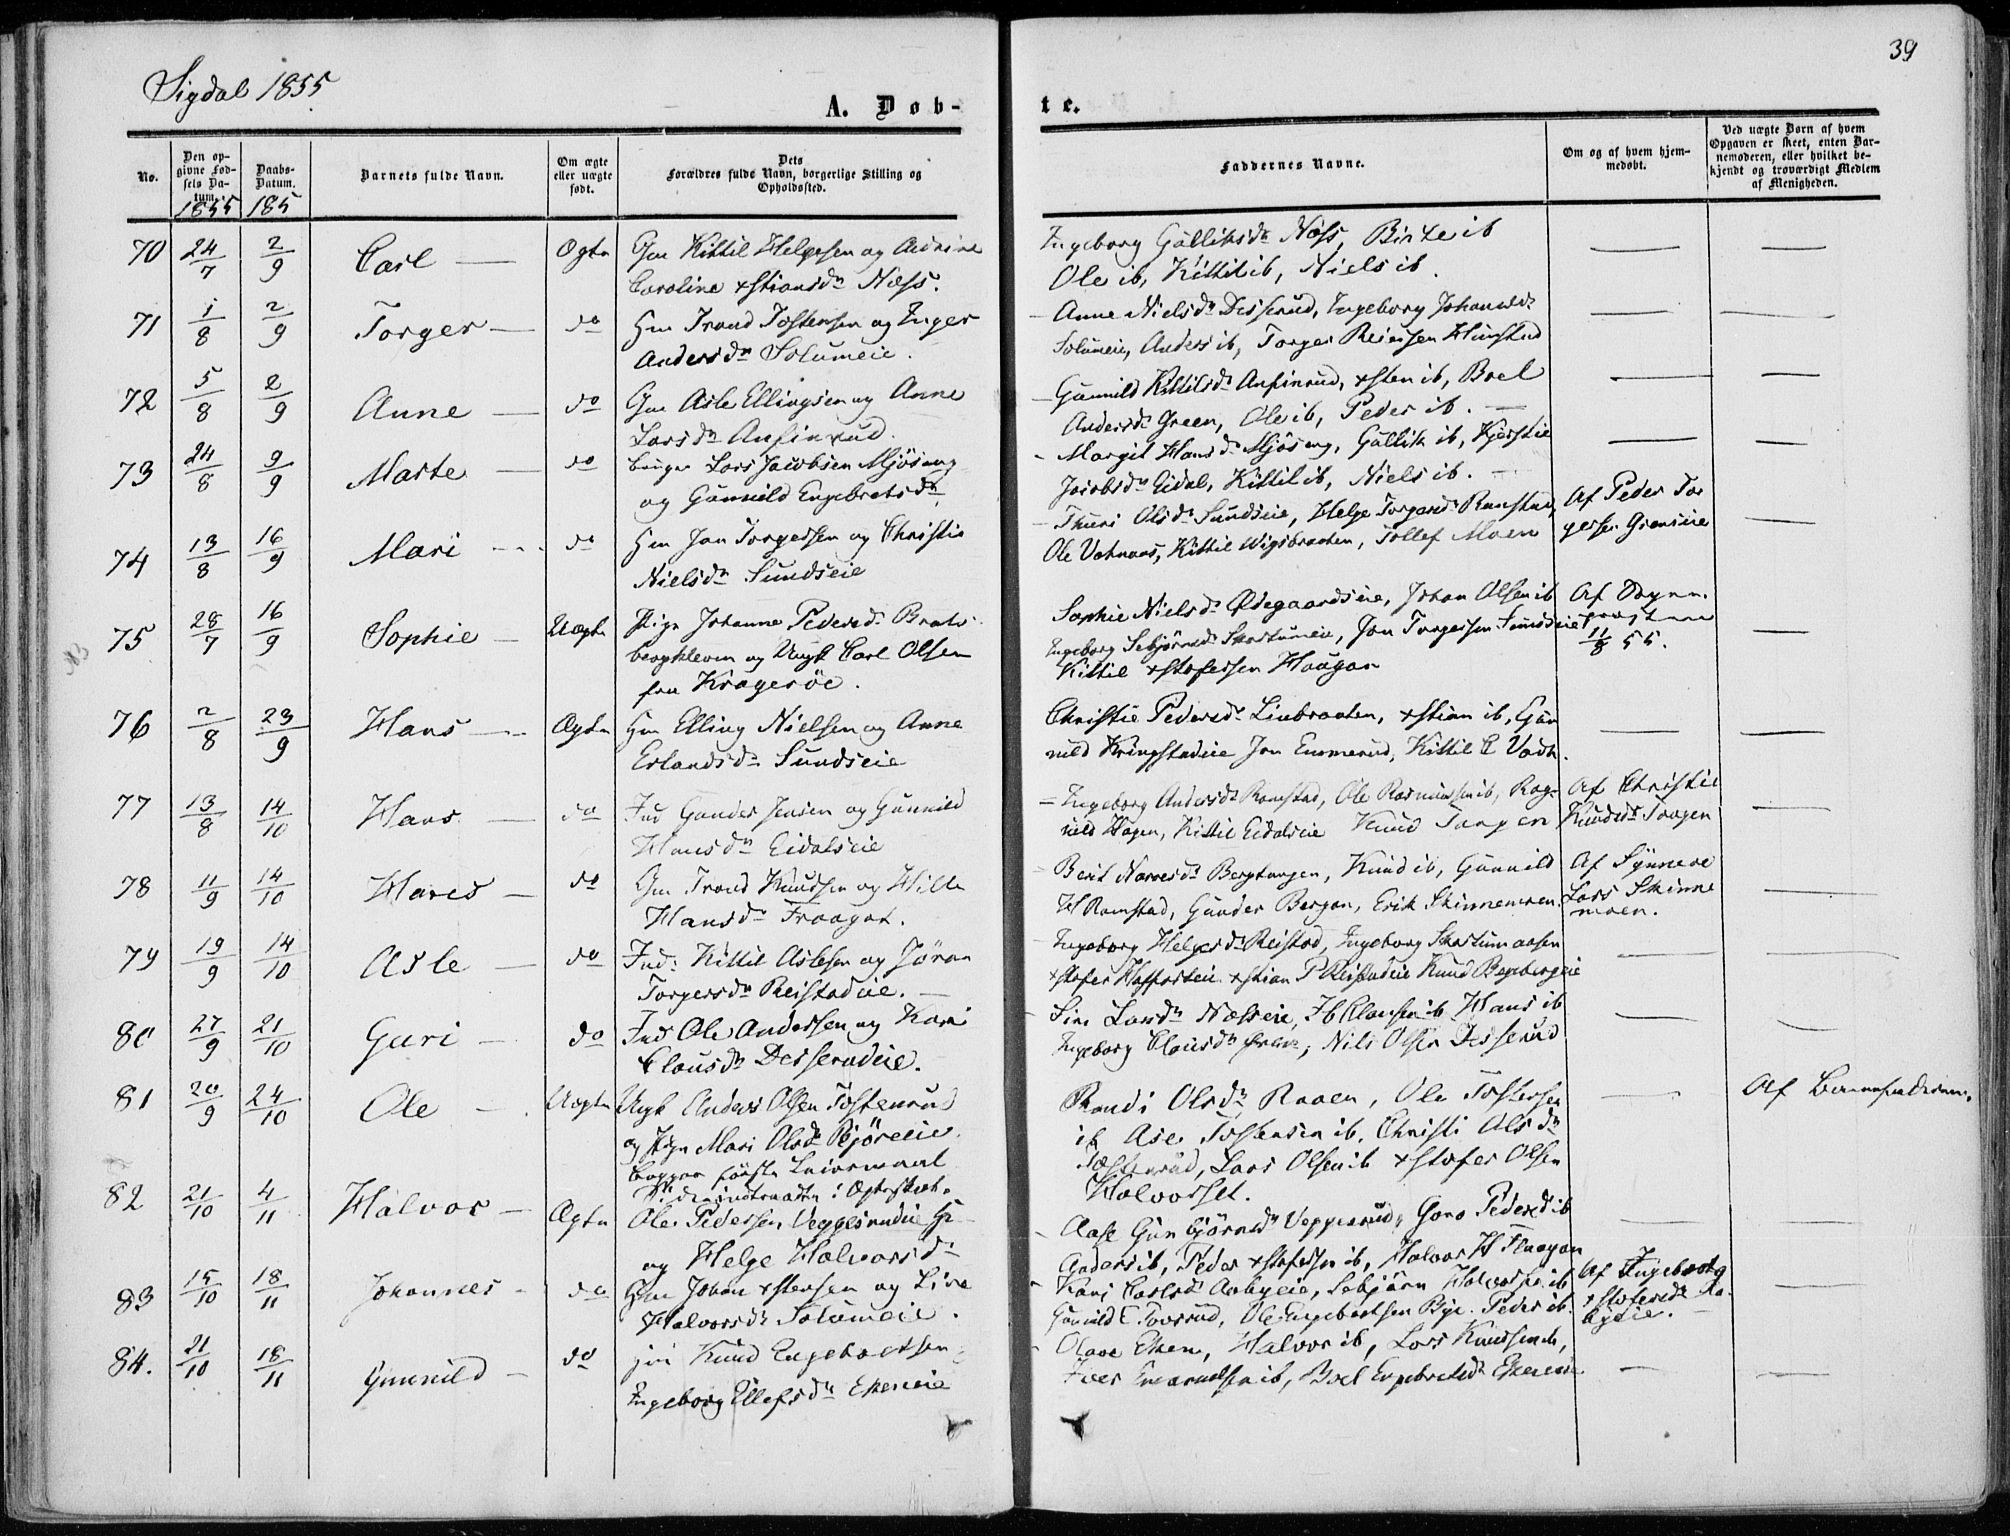 Sigdal 1855
39
A. Døb-
te.
No.
Den op-
givne Fød-
sels Da-
tum.
1855
Daabs-
Datum.
185
Barnets fulde Navn.
Om ægte
eller uægte
født.
Dets
Forældres fulde Navn, borgerlige Stilling og
Opholdssted.
Faddernes Navne.
Om og af hvem hjem-
medøbt.
Ved uægte Børn af hvem
Opgaven er skeet, enten Bar-
nemoderen, eller hvilket be-
kjendt og troværdigt Medlem
af Menigheden.
70 24/7 2/9 Carl Ægte Gm Kittil Helgesen og
Caroline xstiansdr Næss.
Ingeborg Gulliksdr Næss, Birte ib
Ole ib, Kittil ib, Niels ib.
71 1/8 2/9 Torger do Hm Trond Tostensen og Inger
Andersdr Solumeie.
Anne Nielsdr Desserud, Ingeborg Johannesdr
Solumeie, Anders ib, Torger
72 5/8 2/9 Anne do Gm Asle Ellingsen og Anne
Larsdr Anfinrud.
Gunnild Kittilsdr Anfinrud, xsten ib, Boel
Andersdr Green, Ole ib, Peder ib.
73 24/8 9/9 Marte do Lars Jacobsen Mjøseng
og Gunnild Engebretsdr
Margit Hansdr Mjøseng, Gullik ib, Kjerstie
Jacobsdr Eidal, Kittil ib, Niels ib.
74 13/8 16/9 Mari do Hm Jon Torgersen og Christie
Nielsdr Sundseie
Thuri Olsdr Sundseie, Helge Torgersdr Ramstad,
Ole Vatnaas, Kittil Wigsbraaten, Tollef Moen
Af Peder Tor
gersen
75 28/7 16/9 Sophie Uægte Pige Johanne Pedersdr Brats-
bergkleven og Ungk Carl Olsen
fra Kragerøe.
Sophie Nielsdr Ødegaardseie, Johan Olsen ib
Ingeborg Sebjørnsdr Skartumeie, Jon Torgersen Sundseie
Kittil xstofersen Haugan
Af
11/8 55.
76 2/8 23/9 Hans Ægte Hm Elling Nielsen og Anne
Erlandsdr Sundseie
Christie Pedersdr Linbraaten, xstian ib, Gun
nild Kringstadeie Jon Ennerud, Kittil E
77 13/8 14/10 Hans do Ind Gunder Jensen og Gunnild
Hansdr Eidalseie
Ingeborg Andersdr Ramstad, Ole Rasmussen ib, Rag-
nild Hagen, Kittil Eidalseie Knud Tangen
Af Christie
Knudsdr Tangen
78 11/9 14/10 Hans do Gm Trond Knudsen og Hille
Hansdr Fraagot.
Berit Narvesdr Bergtangen, Knud ib, Gunnild
H Ramstad, Gunder Bergan, Erik Skinnemoen
Af Synneve
Lars Skinne
moen.
79 19/9 14/10 Asle do Ind: Kittil Aslesen og Jøran
Torgersdr Reistadeie.
Ingeborg Helgesdr Reistad, Ingeborg Skartumaasen
xstofer Hoffarteie xstian P Reistadeie Knud
80 27/9 21/10 Guri do Ind Ole Andersen og Kari
Clausdr Desserudeie.
Siri Larsdr Næsseie, H Clausen ib Hans ib
Ingeborg Clausdr, Nils Olsen Desserud
81 20/9 24/10 Ole Uægte Ungk Anders Olsen Tostenrud
og Pige Mari Olsdr
Begges første Leiermaal
Randi Olsdr Raaen, Ole Tostensen
ib Asle Tostensen ib, Christi Olsdr
Tostenrud, Lars Olsen ib xstofer Olsen
Halvorset.
Af Barnefaderen.
82 21/10 4/11 Halvor Ægte Ole Pedersen Veggesrudeie
og Helge Halvorsdr
Aase Gunbjørnsdr Veggesrud, Goro Pedersdr ib
Anders ib, Peder xstofersen ib, Halvor H
83 15/10 18/11 Johannes do Hm Johan xstensen og Live
Halvorsdr Solumeie.
Kari Carlsdr, Sebjørn Halvorsen ib
Gunnild E, Ole Engebretsen Bye, Peder ib.
Af Ingeborg
xstofersdr
84. 21/10 18/11 Gunnild do Hm Knud Engebretsen
Ingeborg Ellefsdr Ekereie
Olave Eken, Halvor ib, Lars Knudsen ib,
Iver ib, Boel Engebretsdr Ekereie